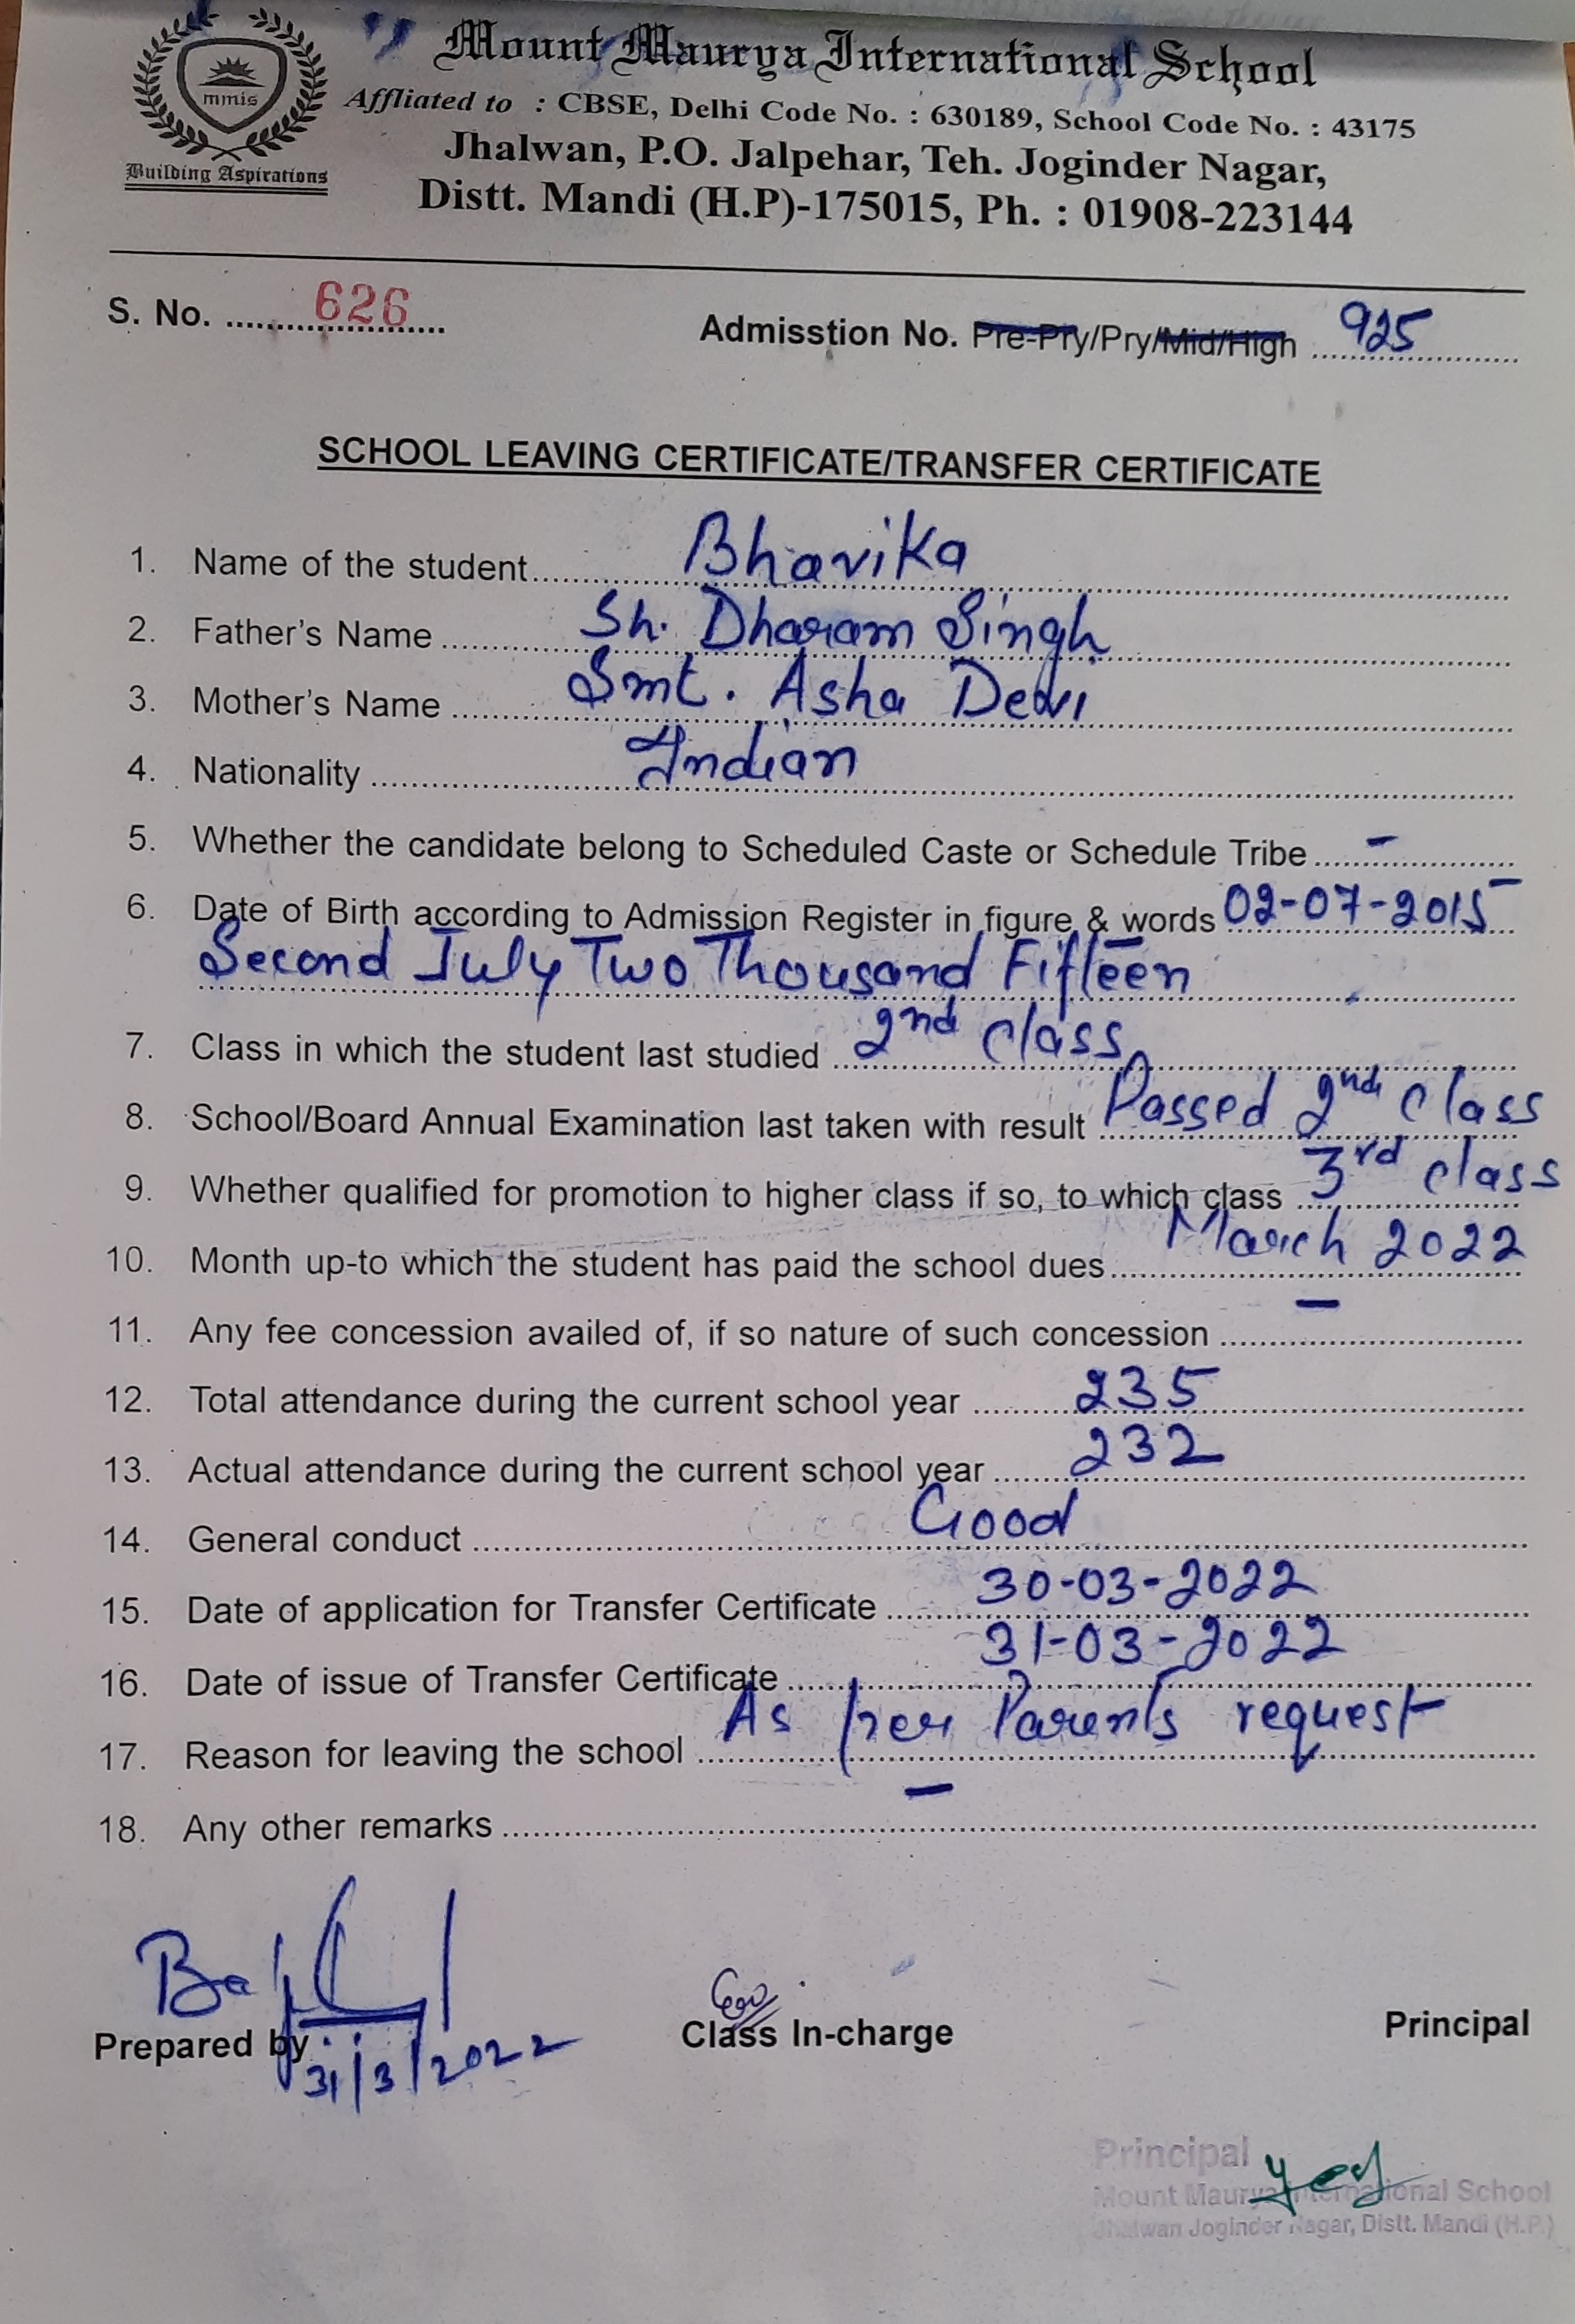 mmis
Building Aspirations
Mount Maurya International School
Affliated to : CBSE, Delhi Code No. : 630189, School Code No. : 43175
Jhalwan, P.O. Jalpehar, Teh. Joginder Nagar,
Distt. Mandi (H.P)-175015, Ph. : 01908-223144
S. No. 626
Admisstion No. Pre-Pry/Pry/Mid/High 925
SCHOOL LEAVING CERTIFICATE/TRANSFER CERTIFICATE
1. Name of the student Bhavika
2. Father's Name Sh. Dharam Singh
3. Mother's Name Smt. Asha Devi
4. Nationality Indian
5. Whether the candidate belong to Scheduled Caste or Schedule Tribe -
6. Date of Birth according to Admission Register in figure & words 02-07-2015
Second July Two Thousand Fifteen
7. Class in which the student last studied 2nd class
8. School/Board Annual Examination last taken with result Passed 2nd Class
9. Whether qualified for promotion to higher class if so, to which class 3rd class
10. Month up-to which the student has paid the school dues March 2022
11. Any fee concession availed of, if so nature of such concession -
12. Total attendance during the current school year 235
13. Actual attendance during the current school year 232
14. General conduct Good
15. Date of application for Transfer Certificate 30-03-2022
16. Date of issue of Transfer Certificate 31-03-2022
17. Reason for leaving the school As per Parents request
18. Any other remarks -
Prepared by
31/3/2022
Class In-charge
Principal
Principal
Mount Maurya International School
Jhalwan Joginder Nagar, Distt. Mandi (H.P.)